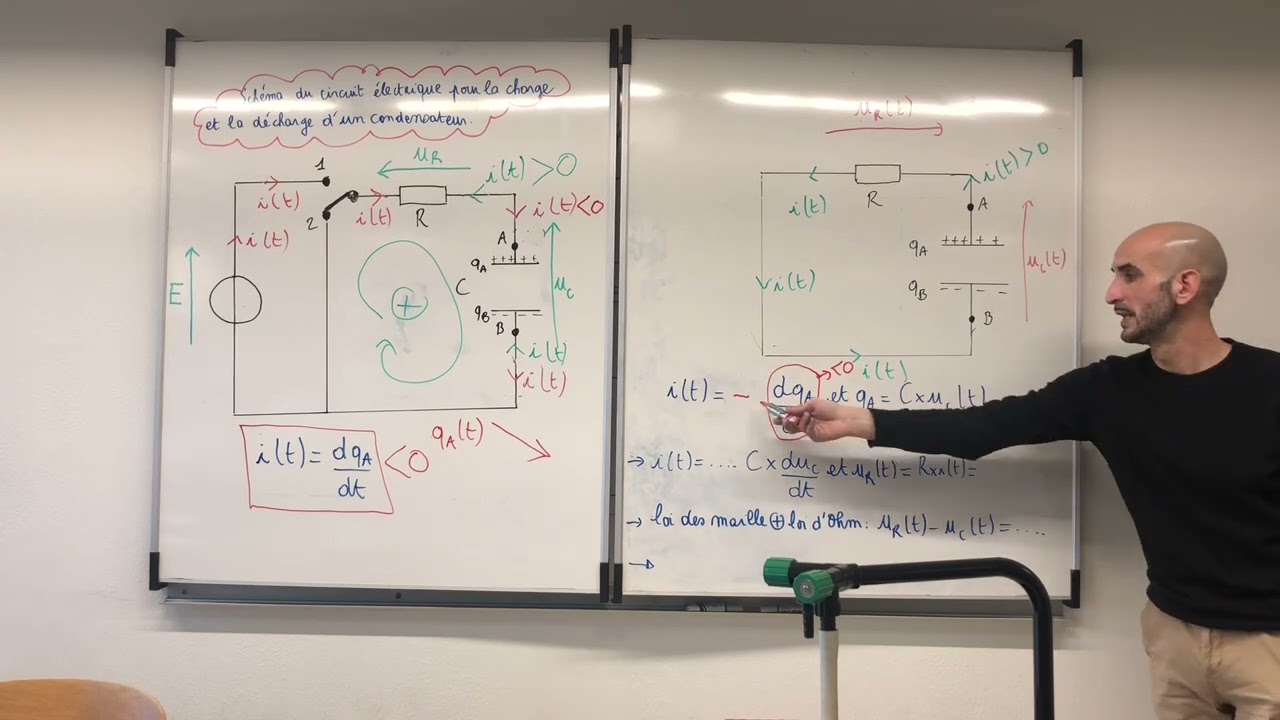 Schéma du circuit électrique pour la charge
et la décharge d'un condensateur.
1
uR
i(t) > 0
i(t)
2
i(t)
R
i(t) < 0
i(t)
A
qA
+++++
E
+
C
uc
qB
B
i(t)
i(t)
i(t) = dqA/dt < 0
qA(t)
uR(t)
i(t) > 0
i(t)
R
A
qA
++++ + +
uc(t)
i(t)
qB
B
i(t)
i(t) = - dqA < 0 et qA = C x uc(t)
→ i(t) = .... C x duc/dt et uR(t) = R x i(t) =
→ loi des maille ⊕ loi d'ohm : uR(t) - uc(t) = ....
→